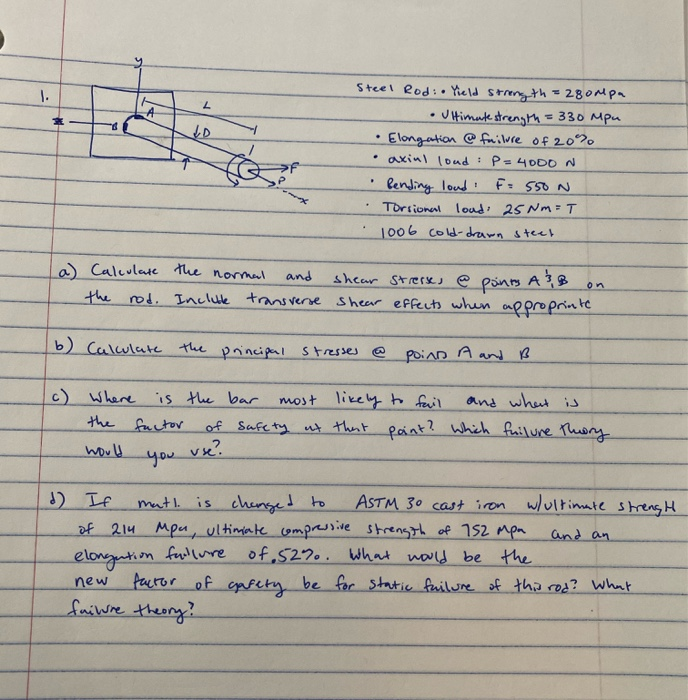 y
1.
A
L
B
D
F
P
x
Steel Rod: • Yield strength = 280 MPa
• Ultimate strength = 330 MPa
• Elongation @ failure of 20%
• axial load : P = 4000 N
• Bending load : F = 550 N
• Torsional load: 25 Nm = T
• 1006 cold-drawn steel
a) Calculate the normal and shear stresses @ points A & B on
the rod. Include transverse shear effects when appropriate
b) Calculate the principal stresses @ points A and B
c) Where is the bar most likely to fail and what is
the factor of safety at that point? Which failure theory
would you use?
d) If matl. is changed to ASTM 30 cast iron w/ultimate strength
of 214 MPa, ultimate compressive strength of 752 MPa and an
elongation failure of .52%. What would be the
new factor of safety be for static failure of this rod? What
failure theory?